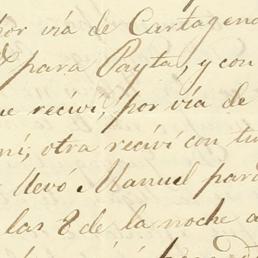 por via de Cartagena
para Payta, y con
recivi, por via de
otra recivi con tu
llevó Manuel para
las 8 de la noche a